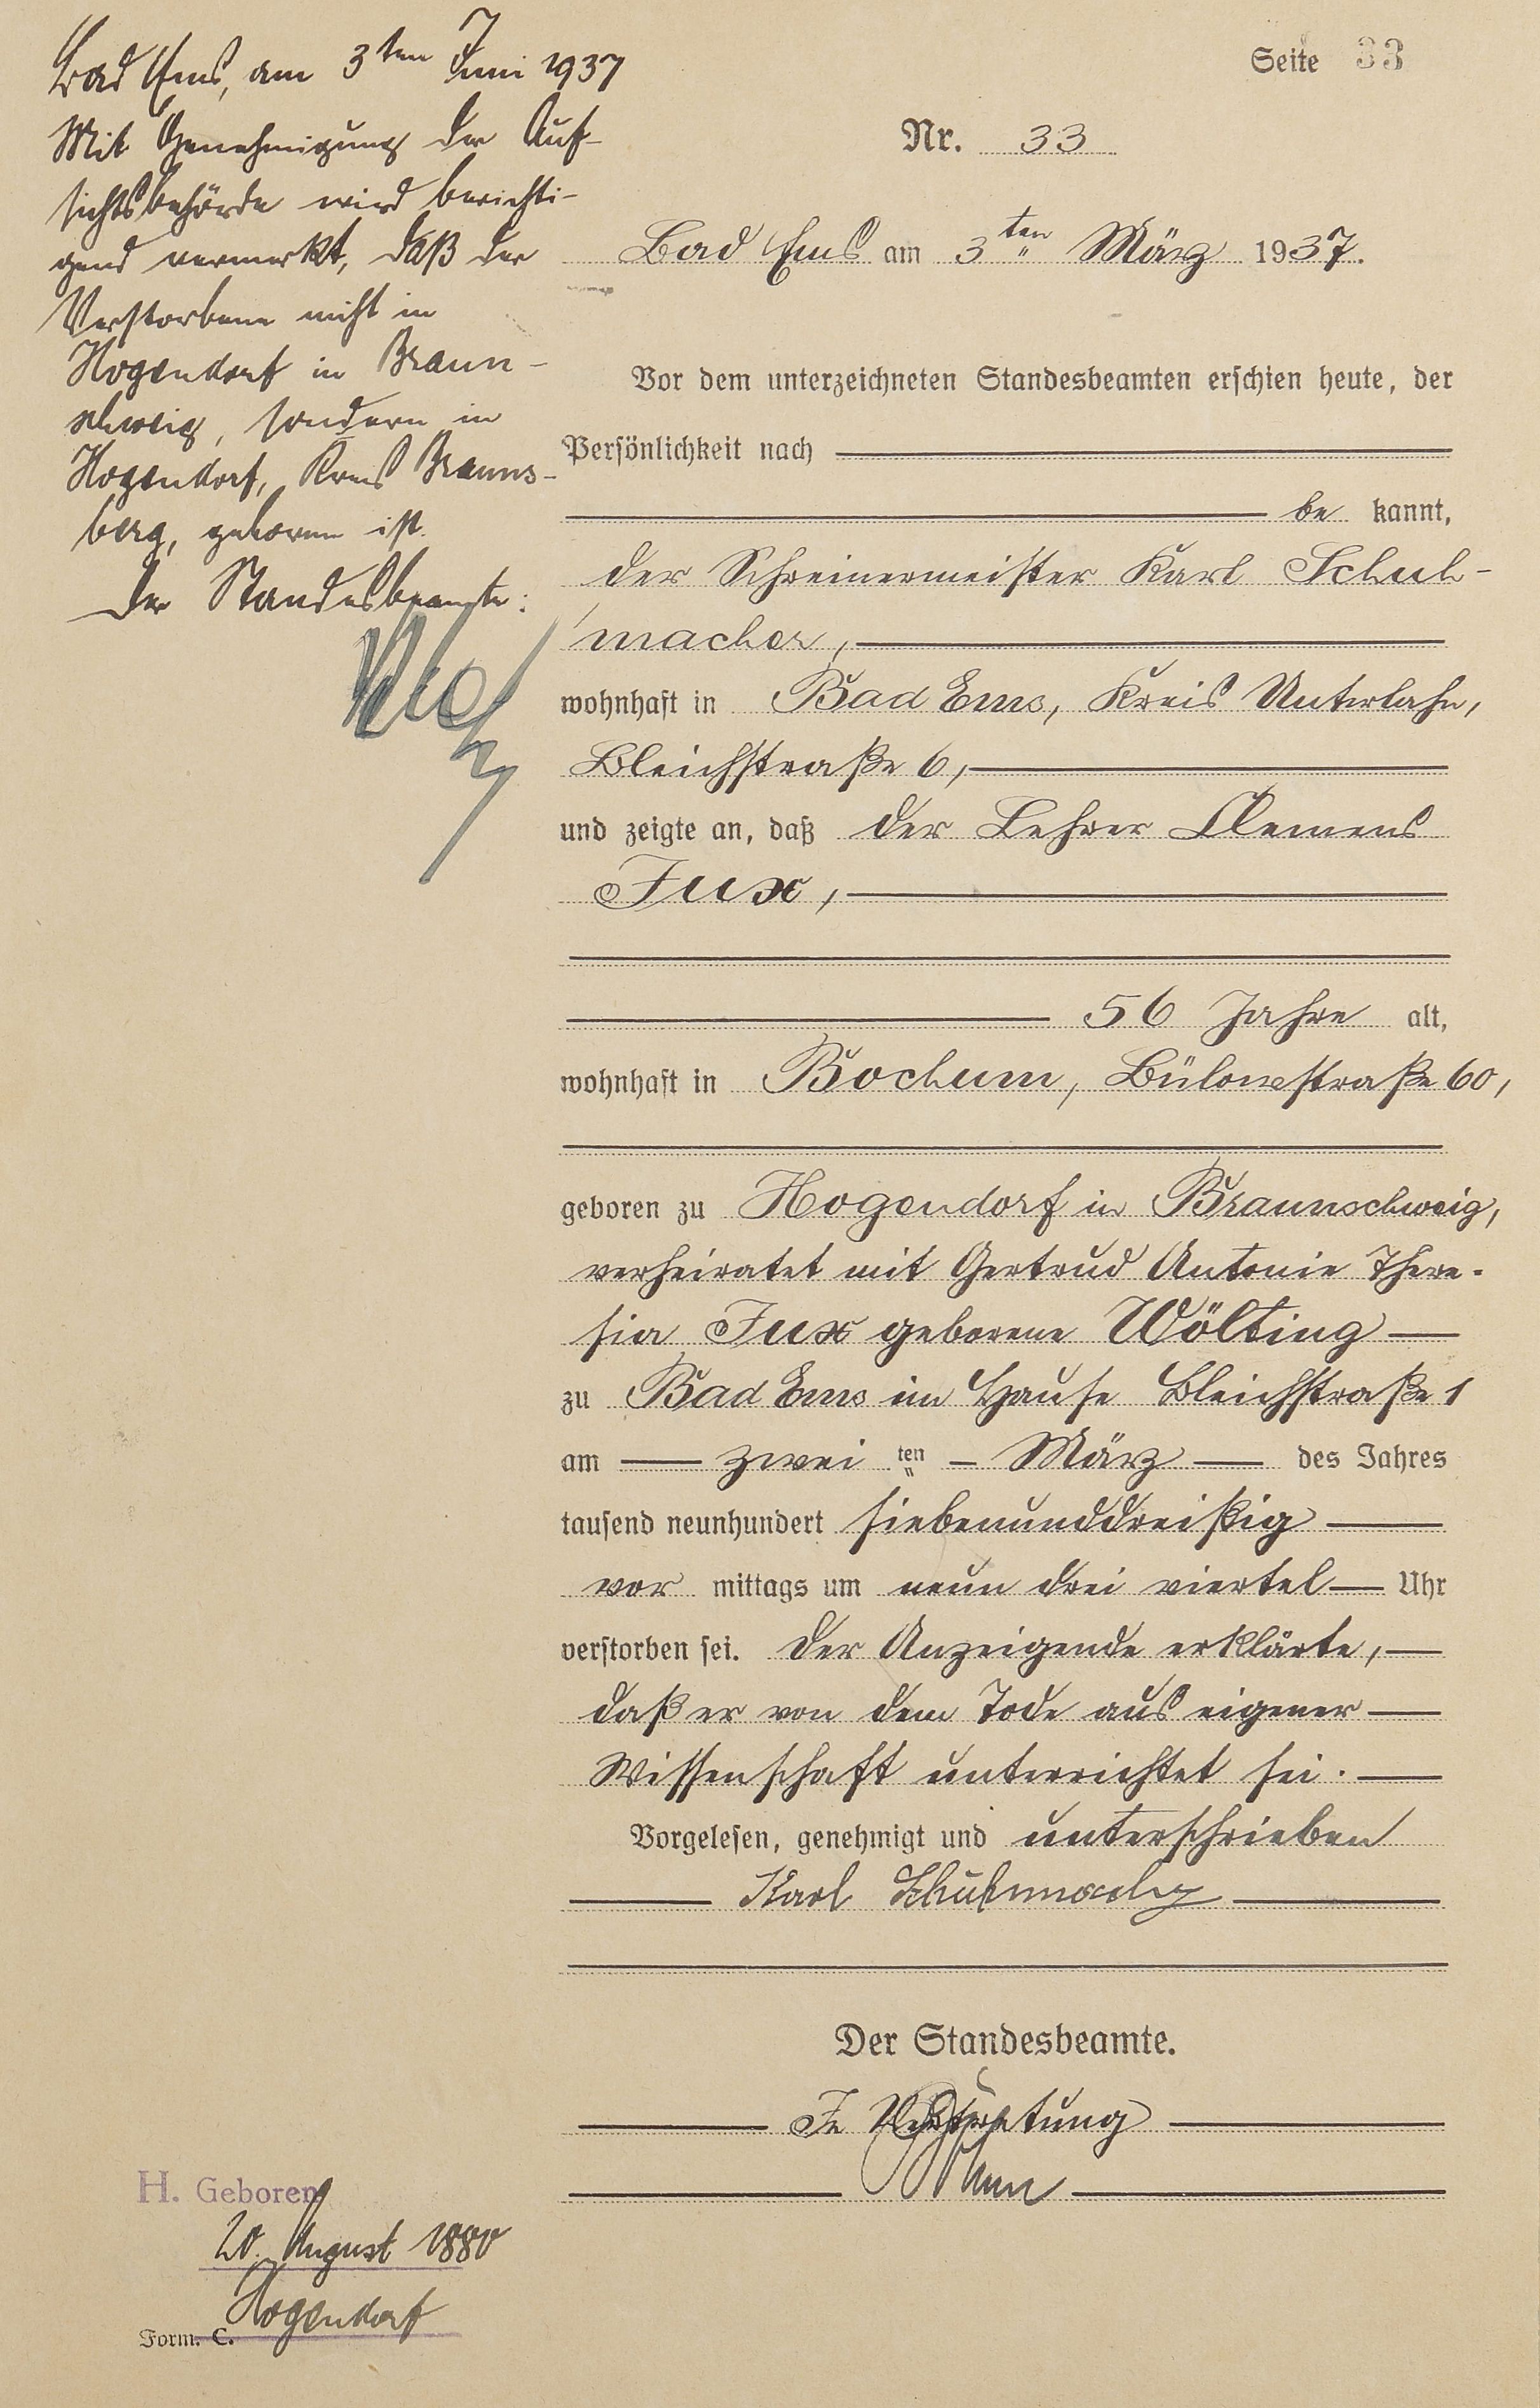 Seite 33
Nr. 33
Bad Ems, am 3ten Juni 1937
Mit Genehmigung der Auf-
sichtsbehörde wird berichti-
gend vermerkt, daß der
Verstorbene nicht in
Hogendorf in Braun-
schweig, sondern in
Hogendorf, Kreis Brauns-
berg, geboren ist.
Der Standesbeamte:
Bad Ems am 3ten März 1937.
Vor dem unterzeichneten Standesbeamten erschien heute, der
Persönlichkeit nach
be kannt,
der Schreinermeister Karl Schuh-
macher,
wohnhaft in Bad Ems, Kreis Unterlahn,
Bleichstraße 6,
und zeigte an, daß der Lehrer Clemens
Fux,
56 Jahre alt,
wohnhaft in Bochum, Bülowstraße 60,
geboren zu Hogendorf in Braunschweig,
verheiratet mit Gertrud Antonie There-
sia Fux geborene Wölting
zu Bad Ems im Hause Bleichstraße 1
am zwei ten März des Jahres
tausend neunhundert siebenunddreißig
vor mittags um neun drei viertel Uhr
verstorben sei. Der Anzeigende erklärte,
daß er von dem Tode aus eigener
Wissenschaft unterrichtet sei.
Vorgelesen, genehmigt und unterschrieben
Karl Schuhmacher
Der Standesbeamte.
In Vertretung
H. Geboren
20. August 1880
Hogendorf
Form. C.